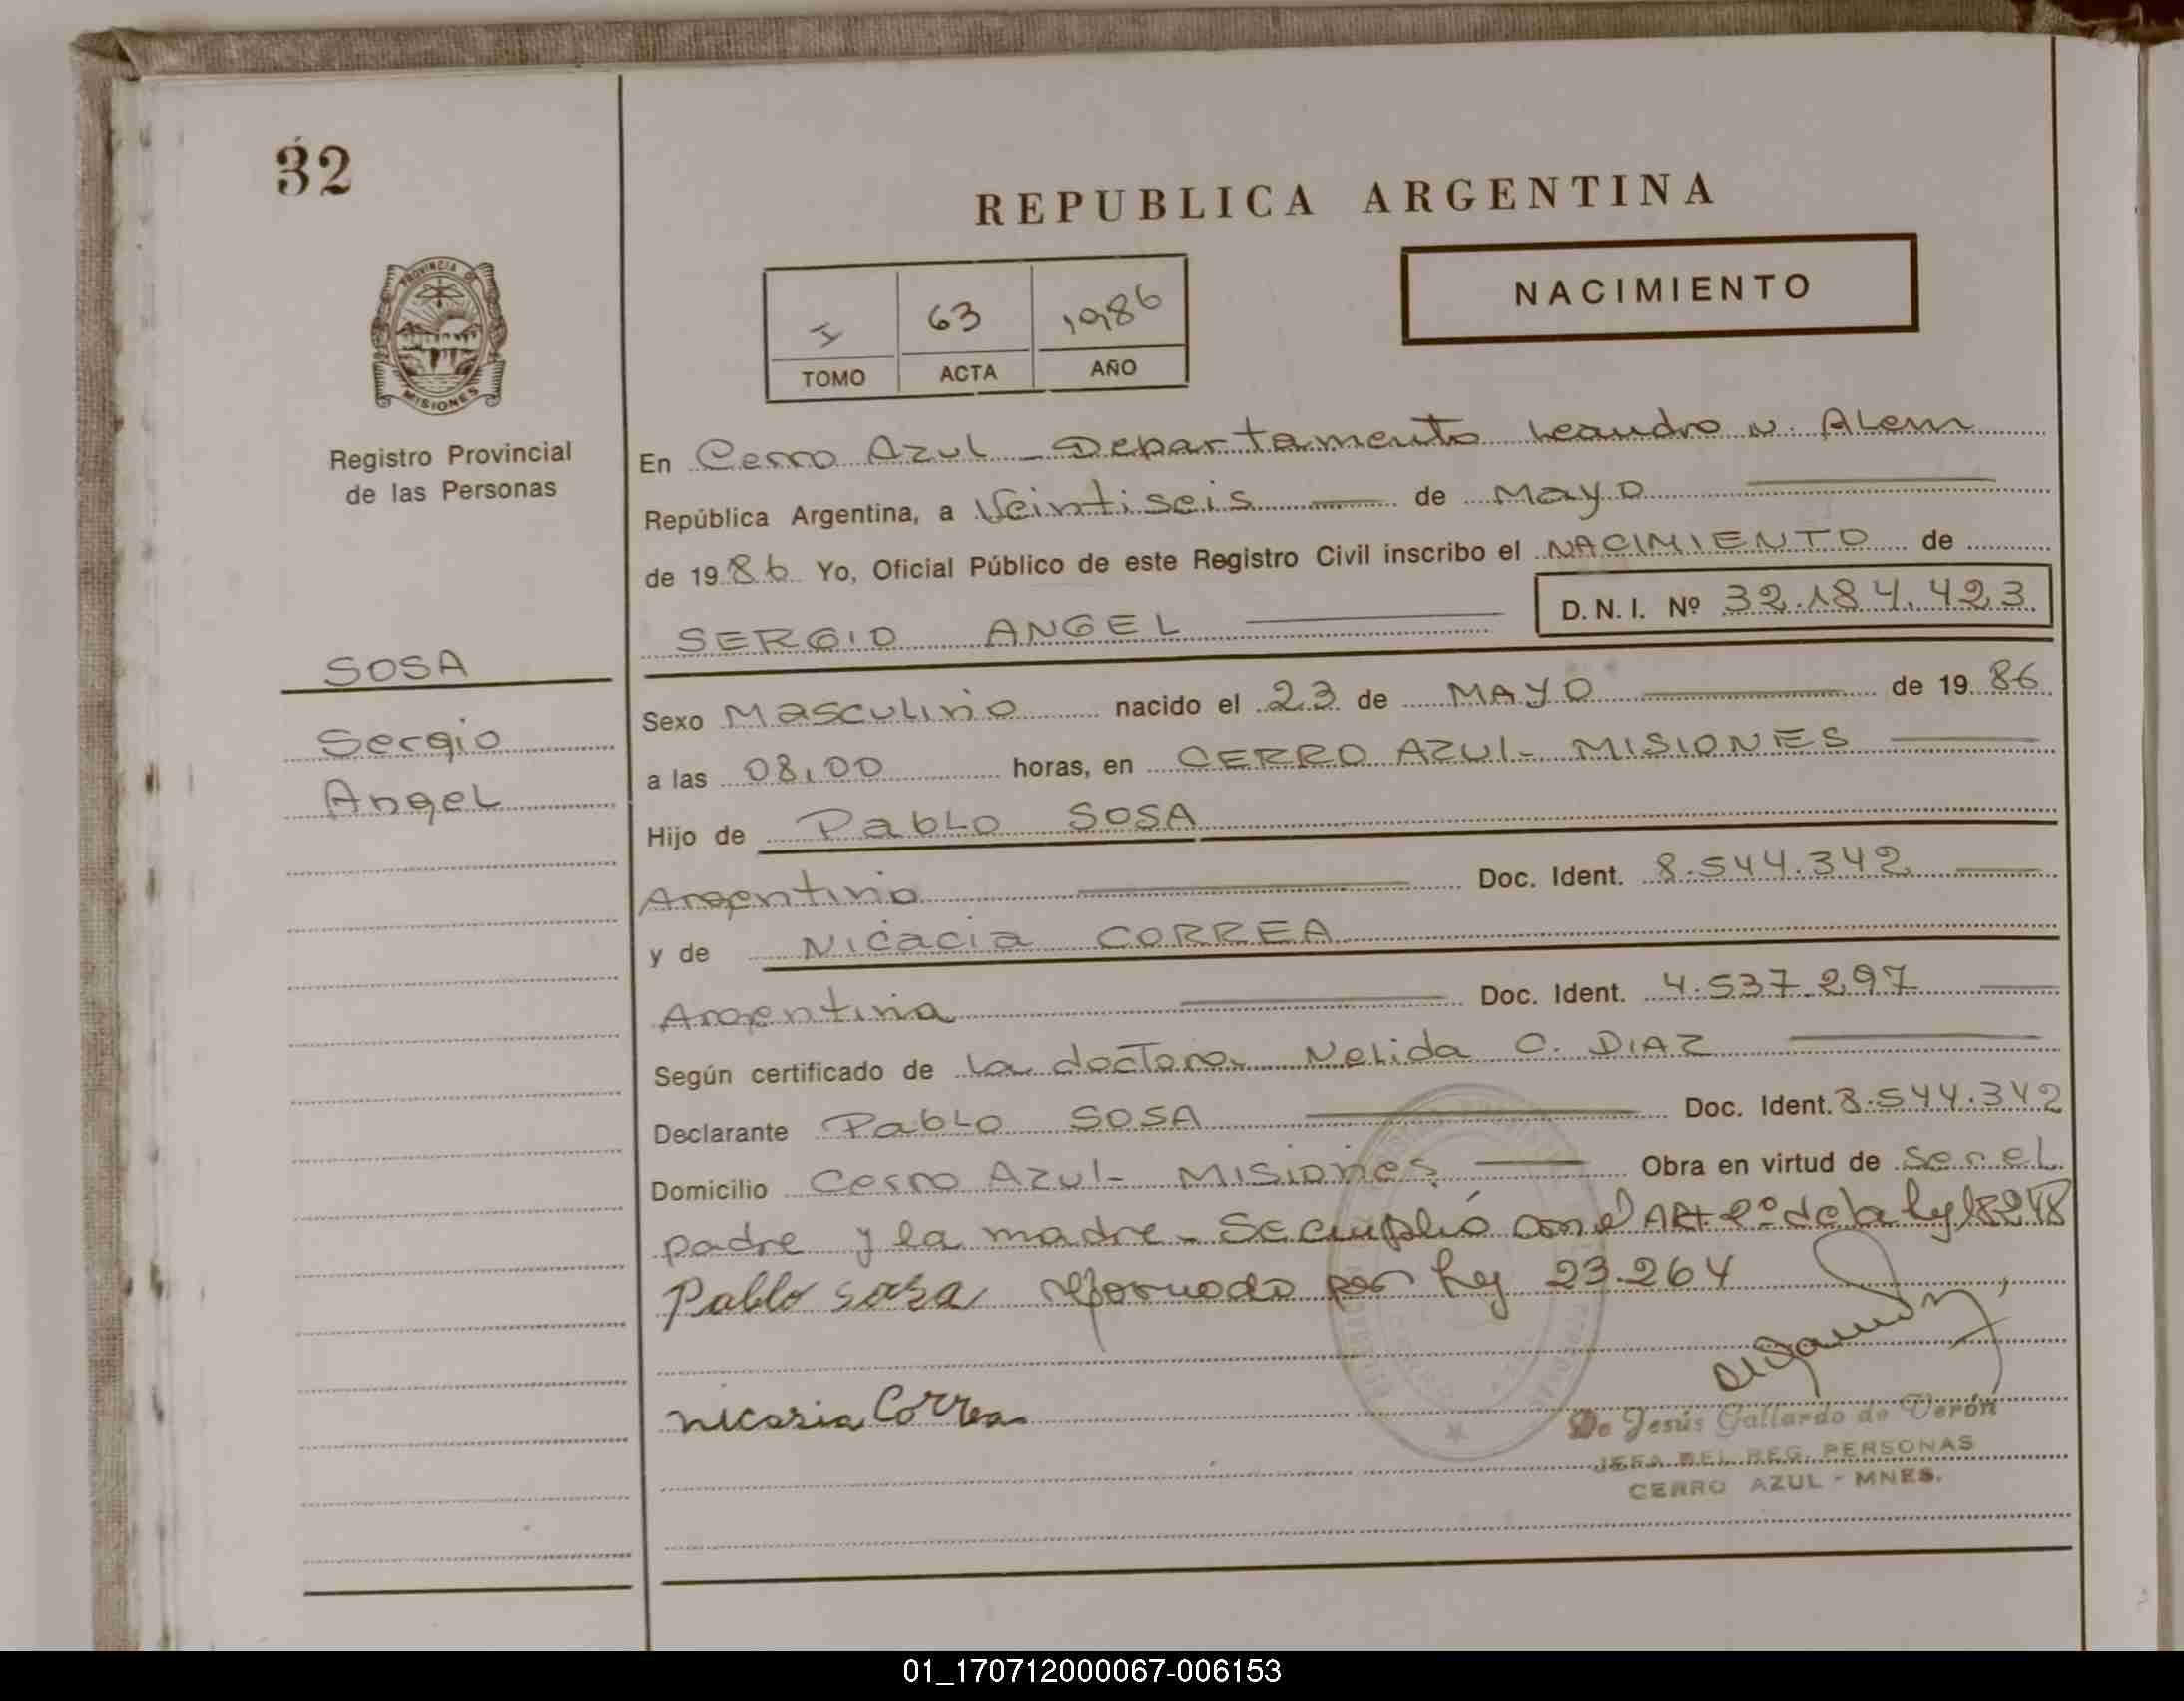 32
PROVINCIA DE
MISIONES
Registro Provincial
de las Personas
SOSA
Sergio
Angel
REPUBLICA ARGENTINA
I 63 1986
TOMO ACTA AÑO
NACIMIENTO
En Cerro Azul - Departamento Leandro N. Alem
República Argentina, a Veintiseis de Mayo
de 1986 Yo, Oficial Público de este Registro Civil inscribo el NACIMIENTO de
SERGIO ANGEL D. N. I. Nº 32.184.423
Sexo Masculino nacido el 23 de MAYO de 1986
a las 08,00 horas, en CERRO AZUL- MISIONES
Hijo de Pablo SOSA
Argentino Doc. Ident. 8.544.342
y de Nicacia CORREA
Argentina Doc. Ident. 4.537.297
Según certificado de la doctora Nelida C. DIAZ
Declarante Pablo SOSA Doc. Ident. 8.544.342
Domicilio Cerro Azul- Misiones Obra en virtud de ser el
padre y la madre - Se cumplió con el ART 2º de la ley 18248
Pablo sosa reformado por ley 23.264
nicasia Correa
De Jesús Gallardo de Verón
JEFA DEL REG. PERSONAS
CERRO AZUL - MNES.
01_170712000067-006153